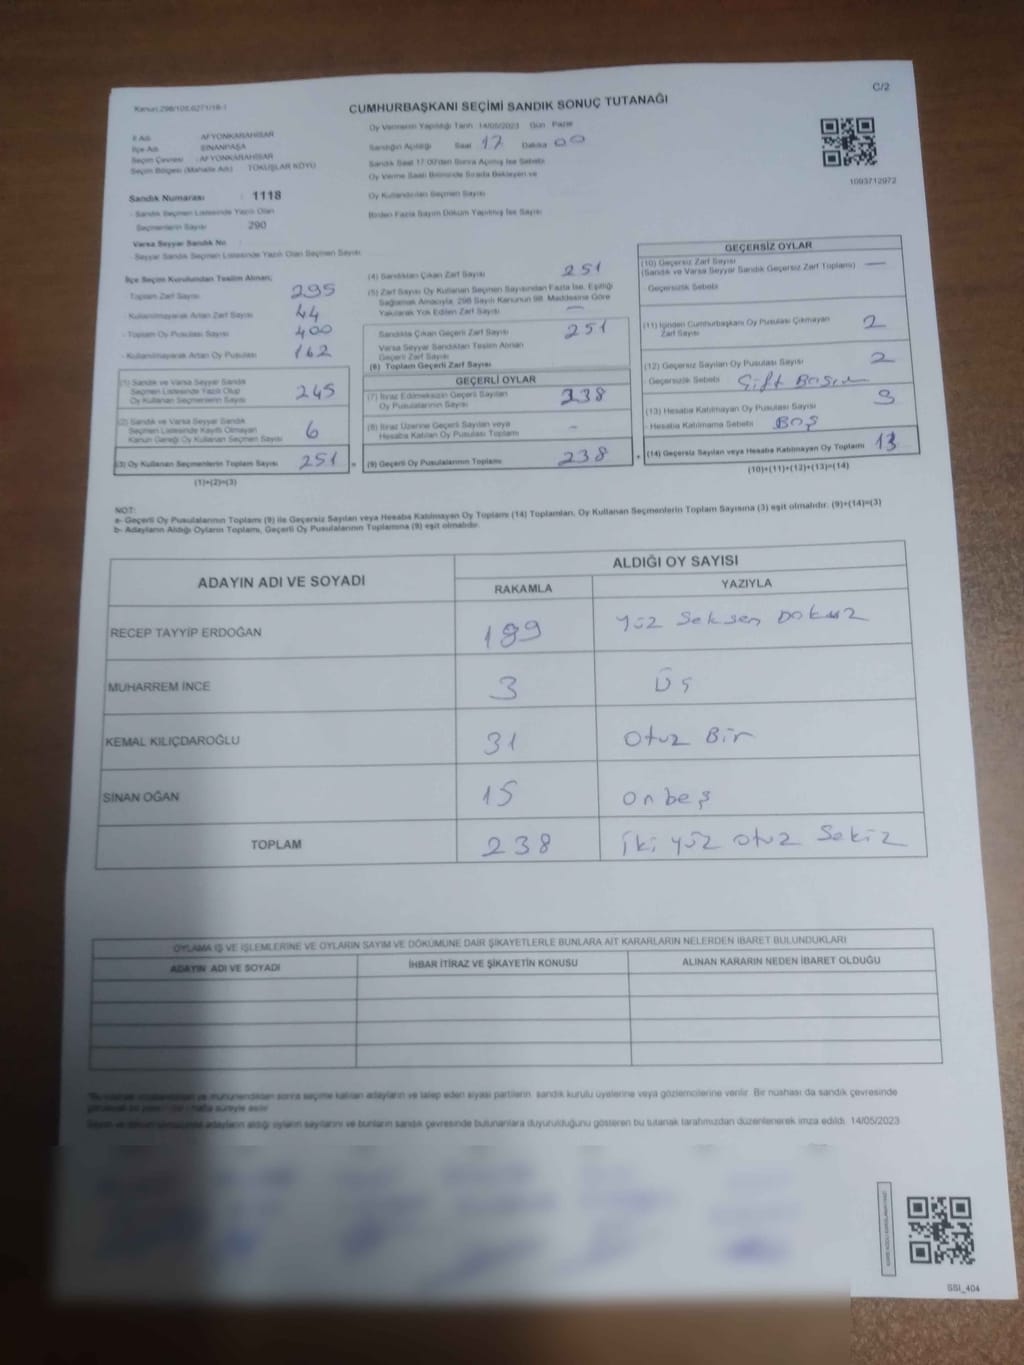 C/2
CUMHURBAŞKANI SEÇİMİ SANDIK SONUÇ TUTANAĞI
İl Adı : AFYONKARAHİSAR
İlçe Adı : SİNANPAŞA
Seçim Çevresi : AFYONKARAHİSAR
Seçim Bölgesi (Mahalle Adı) : TOKUŞLAR KÖYÜ
Oy Vermenin Yapıldığı Tarih 14/05/2023 Gün Pazar
Sandığın Açıldığı Saat 17 Dakika 00
Sandık Saat 17.00'den Sonra Açılmış İse Sebebi
Oy Verme Saati Bitiminde Sırada Bekleyen ve
Oy Kullandırılan Seçmen Sayısı
Birden Fazla Sayım Döküm Yapılmış İse Sayısı
1093712972
Sandık Numarası : 1118
- Sandık Seçmen Listesinde Yazılı Olan
Seçmenlerin Sayısı 290
Varsa Seyyar Sandık No :
- Seyyar Sandık Seçmen Listesinde Yazılı Olan Seçmen Sayısı
İlçe Seçim Kurulundan Teslim Alınan;
- Toplam Zarf Sayısı 295
- Kullanılmayarak Artan Zarf Sayısı 44
- Toplam Oy Pusulası Sayısı 400
- Kullanılmayarak Artan Oy Pusulası 162
(1) Sandık ve Varsa Seyyar Sandık
Seçmen Listesinde Yazılı Olup
Oy Kullanan Seçmenlerin Sayısı 245
(2) Sandık ve Varsa Seyyar Sandık
Seçmen Listesinde Kayıtlı Olmayan
Kanun Gereği Oy Kullanan Seçmen Sayısı 6
(3) Oy Kullanan Seçmenlerin Toplam Sayısı 251 =
(1)+(2)=(3)
(4) Sandıktan Çıkan Zarf Sayısı 251
(5) Zarf Sayısı Oy Kullanan Seçmen Sayısından Fazla İse, Eşitliği
Sağlamak Amacıyla, 298 Sayılı Kanunun 98. Maddesine Göre
Yakılarak Yok Edilen Zarf Sayısı —
Sandıkta Çıkan Geçerli Zarf Sayısı 251
Varsa Seyyar Sandıktan Teslim Alınan
Geçerli Zarf Sayısı
(6) Toplam Geçerli Zarf Sayısı
GEÇERLİ OYLAR
(7) İtiraz Edilmeksizin Geçerli Sayılan
Oy Pusulalarının Sayısı 238
(8) İtiraz Üzerine Geçerli Sayılan veya
Hesaba Katılan Oy Pusulası Toplamı -
(9) Geçerli Oy Pusulalarının Toplamı 238 +
GEÇERSİZ OYLAR
(10) Geçersiz Zarf Sayısı
(Sandık ve Varsa Seyyar Sandık Geçersiz Zarf Toplamı) —
- Geçersizlik Sebebi
(11) İçinden Cumhurbaşkanı Oy Pusulası Çıkmayan
Zarf Sayısı 2
(12) Geçersiz Sayılan Oy Pusulası Sayısı 2
- Geçersizlik Sebebi Çift Basım
(13) Hesaba Katılmayan Oy Pusulası Sayısı 9
- Hesaba Katılmama Sebebi BOŞ
(14) Geçersiz Sayılan veya Hesaba Katılmayan Oy Toplamı 13
(10)+(11)+(12)+(13)=(14)
NOT:
a- Geçerli Oy Pusulalarının Toplamı (9) ile Geçersiz Sayılan veya Hesaba Katılmayan Oy Toplamı (14) Toplamları, Oy Kullanan Seçmenlerin Toplam Sayısına (3) eşit olmalıdır. (9)+(14)=(3)
b- Adayların Aldığı Oyların Toplamı, Geçerli Oy Pusulalarının Toplamına (9) eşit olmalıdır.
ADAYIN ADI VE SOYADI
ALDIĞI OY SAYISI
RAKAMLA YAZIYLA
RECEP TAYYİP ERDOĞAN 189 Yüz Seksen Dokuz
MUHARREM İNCE 3 Üş
KEMAL KILIÇDAROĞLU 31 Otuz Bir
SİNAN OĞAN 15 Onbeş
TOPLAM 238 İki yüz Otuz Sekiz
OYLAMA İŞ VE İŞLEMLERİNE VE OYLARIN SAYIM VE DÖKÜMÜNE DAİR ŞİKAYETLERLE BUNLARA AİT KARARLARIN NELERDEN İBARET BULUNDUKLARI
ADAYIN ADI VE SOYADI İHBAR İTİRAZ VE ŞİKAYETİN KONUSU ALINAN KARARIN NEDEN İBARET OLDUĞU
sonra seçime katılan adayların ve talep eden siyasi partilerin, sandık kurulu üyelerine veya gözlemcilerine verilir. Bir nüshası da sandık çevresinde
hafta süreyle asılır.
adayların aldığı oyların sayılarını ve bunların sandık çevresinde bulunanlara duyurulduğunu gösteren bu tutanak tarafımızdan düzenlenerek imza edildi. 14/05/2023
SSI_404